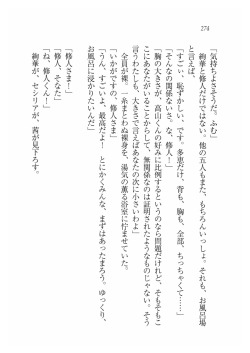 274
「気持ちよさそうだ。ふむ」
絢華と修人だけではない。他の五人もまた、もちろんいっしょ。それも、お風呂場
と言えば、
「すごい、恥ずかしい、です。多恵だけ、背も、胸も、全部、ちっちゃくて……」
「そんなの関係ないさ、な、修人！」
「胸の大きさが、高山くんの好みに比例するというのなら問題だけれど、そもそもこ
こにあなたがいることからして、無関係なのは証明されたようなものじゃない。そう
言うわたしも、大きさで言えばあなたの次に小さいわよ」
全員が裸。糸まとわぬ裸身を、湯気の薫る浴室に佇ませていた。
「いかがですの、修人さま」
「うん、すごいよ、最高だよ！　とにかくみんな、まずはあったまろう。ゆっくり、
お風呂に浸かりたいんだ」
「修人さま！」
「修人、そなた」
「ね、修人くん！」
絢華が、セシリアが、茜が見下ろす。